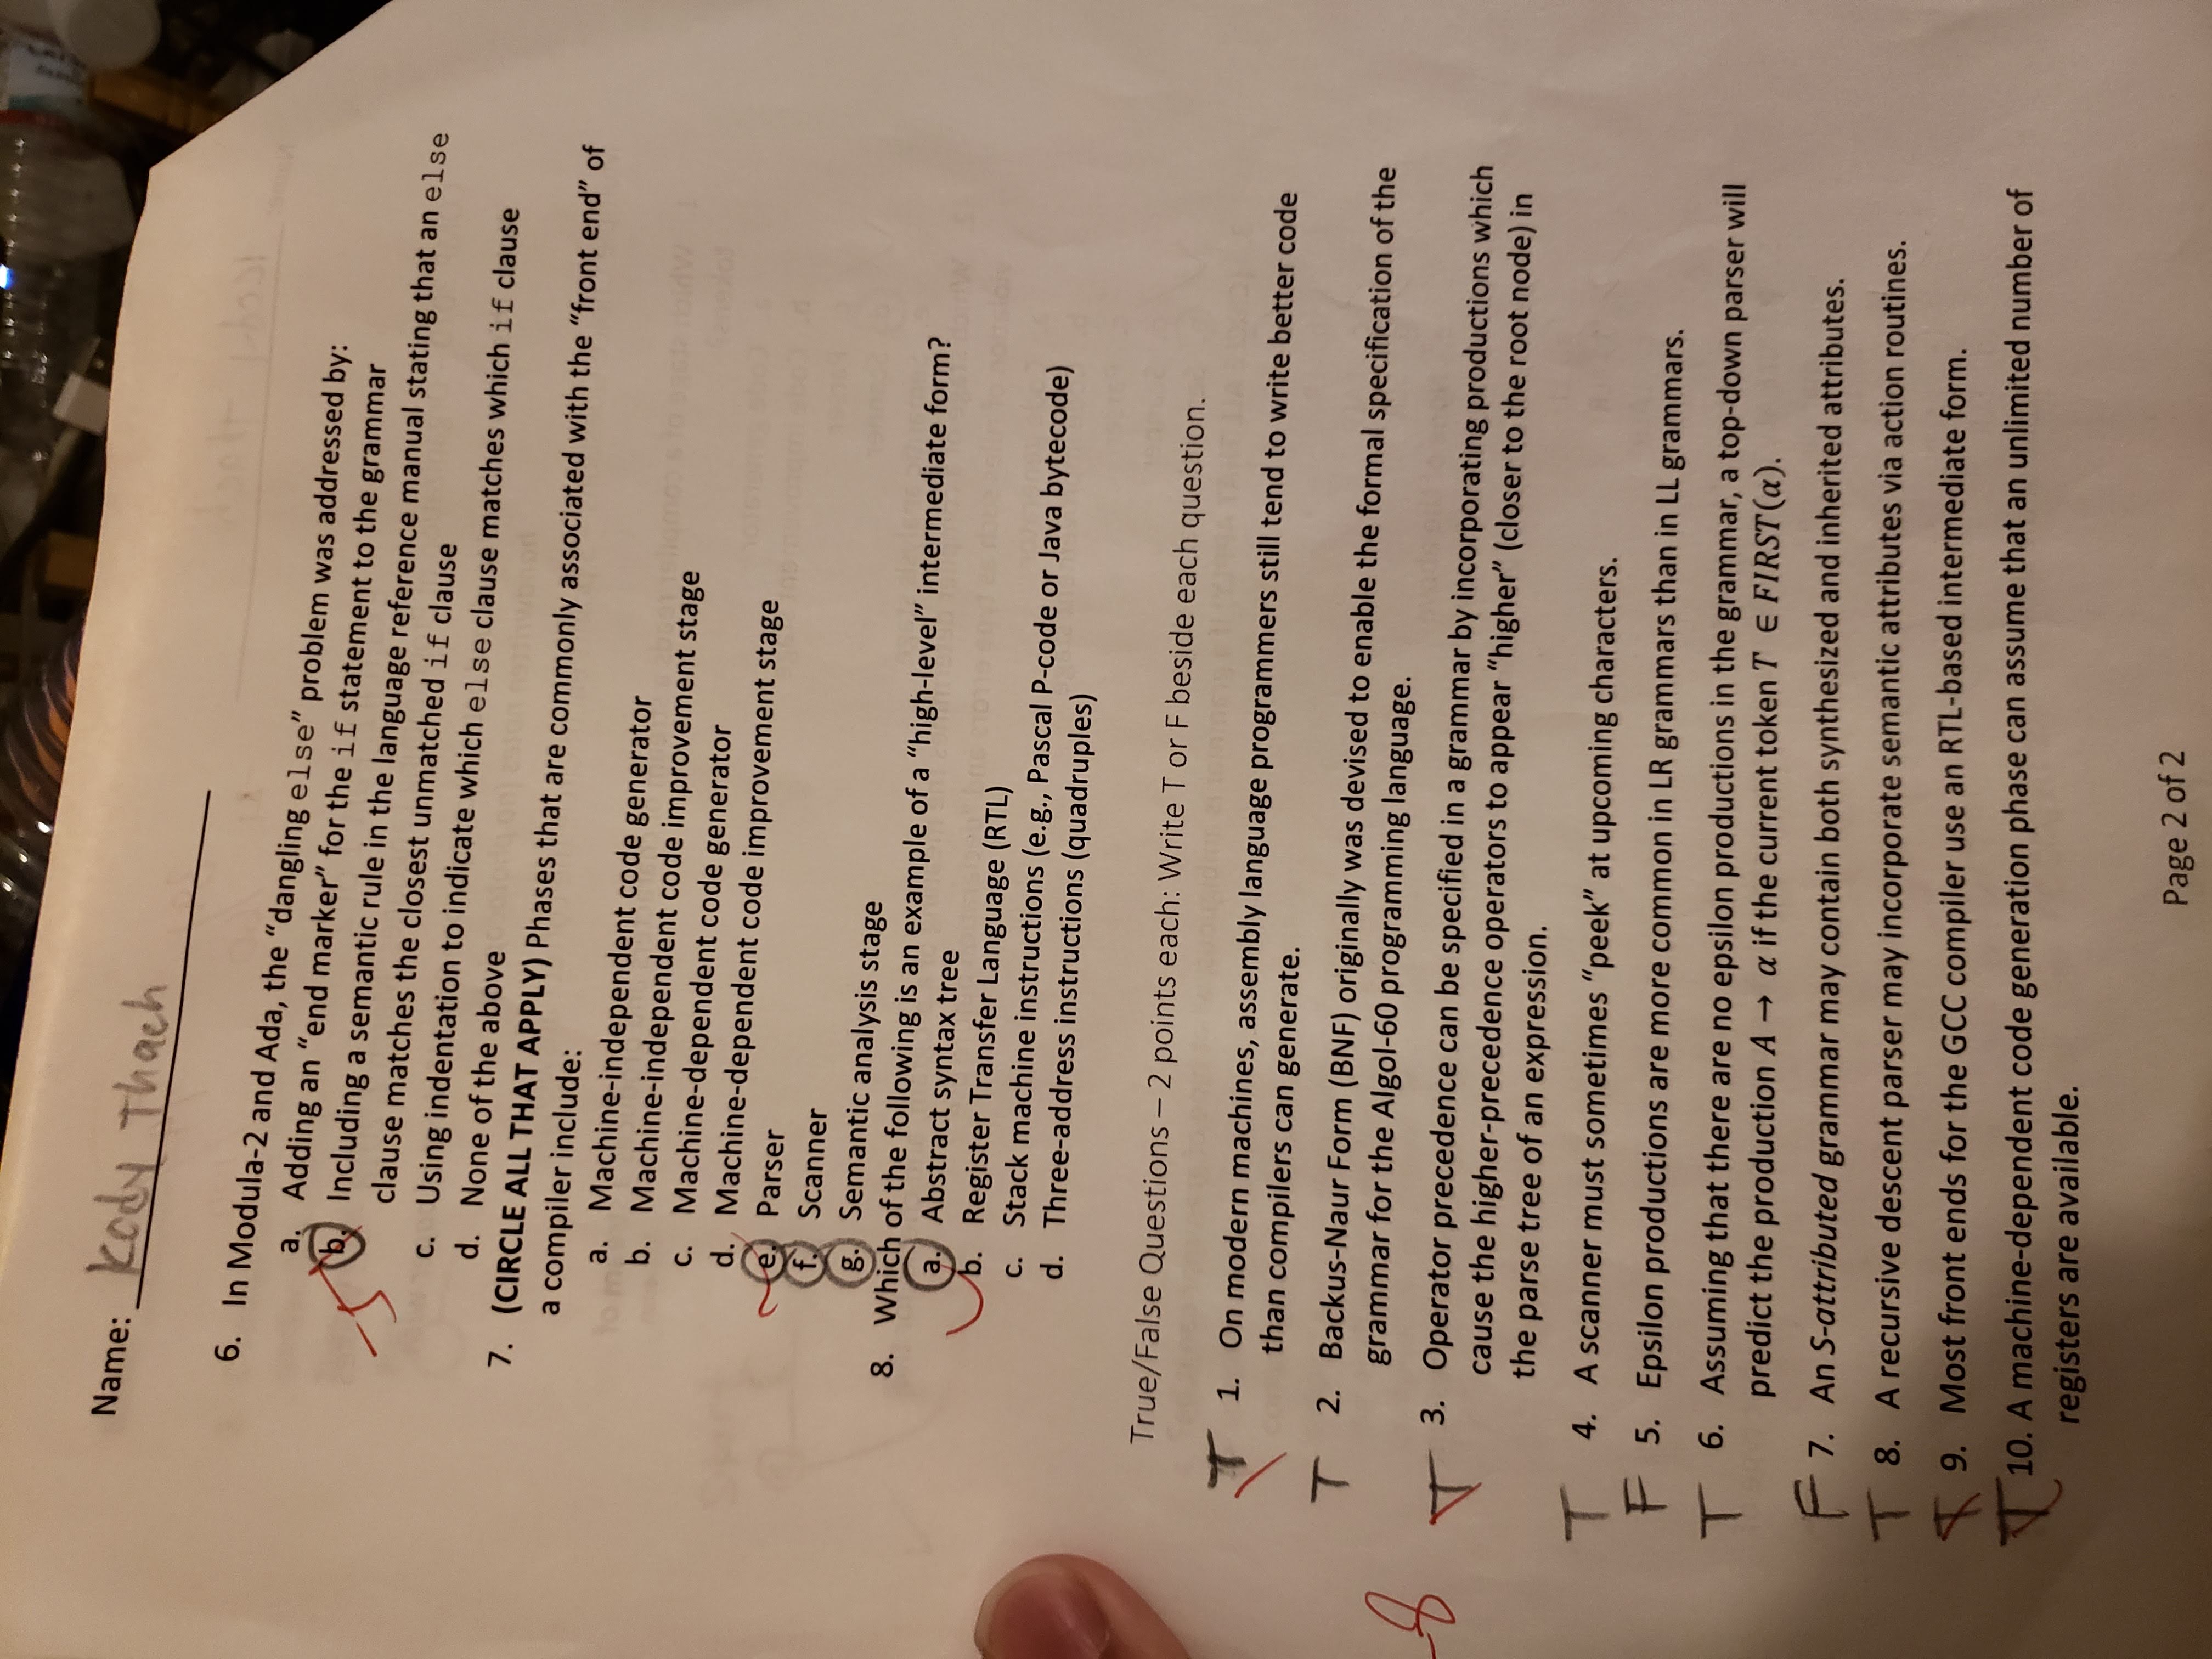 Name: Kody Thach
6. In Modula-2 and Ada, the “dangling else” problem was addressed by:
a. Adding an “end marker” for the if statement to the grammar
-5
b. Including a semantic rule in the language reference manual stating that an else
clause matches the closest unmatched if clause
c. Using indentation to indicate which else clause matches which if clause
d. None of the above
7. (CIRCLE ALL THAT APPLY) Phases that are commonly associated with the “front end” of
a compiler include:
a. Machine-independent code generator
b. Machine-independent code improvement stage
c. Machine-dependent code generator
d. Machine-dependent code improvement stage
e. Parser
f. Scanner
g. Semantic analysis stage
8. Which of the following is an example of a “high-level” intermediate form?
a. Abstract syntax tree
b. Register Transfer Language (RTL)
c. Stack machine instructions (e.g., Pascal P-code or Java bytecode)
d. Three-address instructions (quadruples)
True/False Questions – 2 points each: Write T or F beside each question.
T 1. On modern machines, assembly language programmers still tend to write better code
than compilers can generate.
T 2. Backus-Naur Form (BNF) originally was devised to enable the formal specification of the
grammar for the Algol-60 programming language.
-8
T 3. Operator precedence can be specified in a grammar by incorporating productions which
cause the higher-precedence operators to appear “higher” (closer to the root node) in
the parse tree of an expression.
T 4. A scanner must sometimes “peek” at upcoming characters.
F 5. Epsilon productions are more common in LR grammars than in LL grammars.
T 6. Assuming that there are no epsilon productions in the grammar, a top-down parser will
predict the production A → α if the current token T ∈ FIRST(α).
F 7. An S-attributed grammar may contain both synthesized and inherited attributes.
T 8. A recursive descent parser may incorporate semantic attributes via action routines.
T 9. Most front ends for the GCC compiler use an RTL-based intermediate form.
T 10. A machine-dependent code generation phase can assume that an unlimited number of
registers are available.
Page 2 of 2